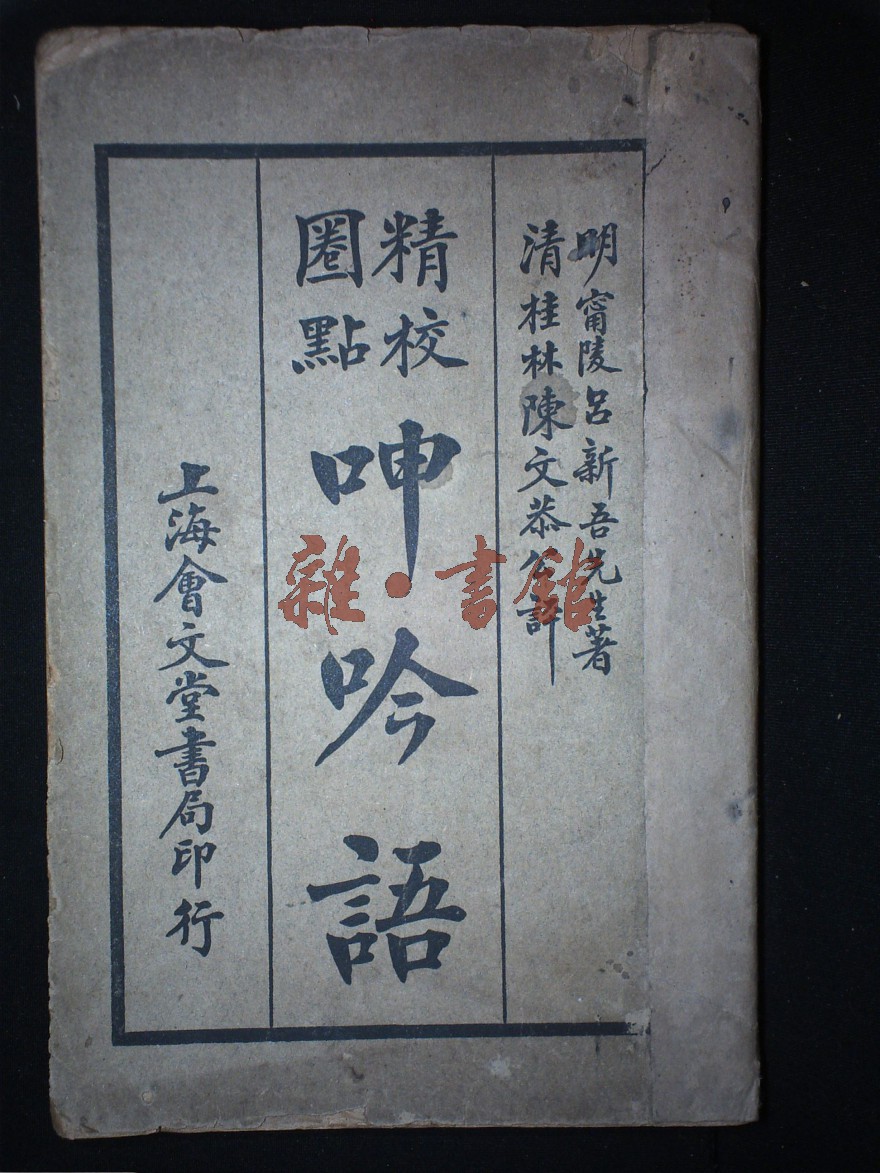 明甯陵呂新吾先生著
清桂林陳文恭公評
精校
圈點
呻吟語
上海會文堂書局印行
雜·書館